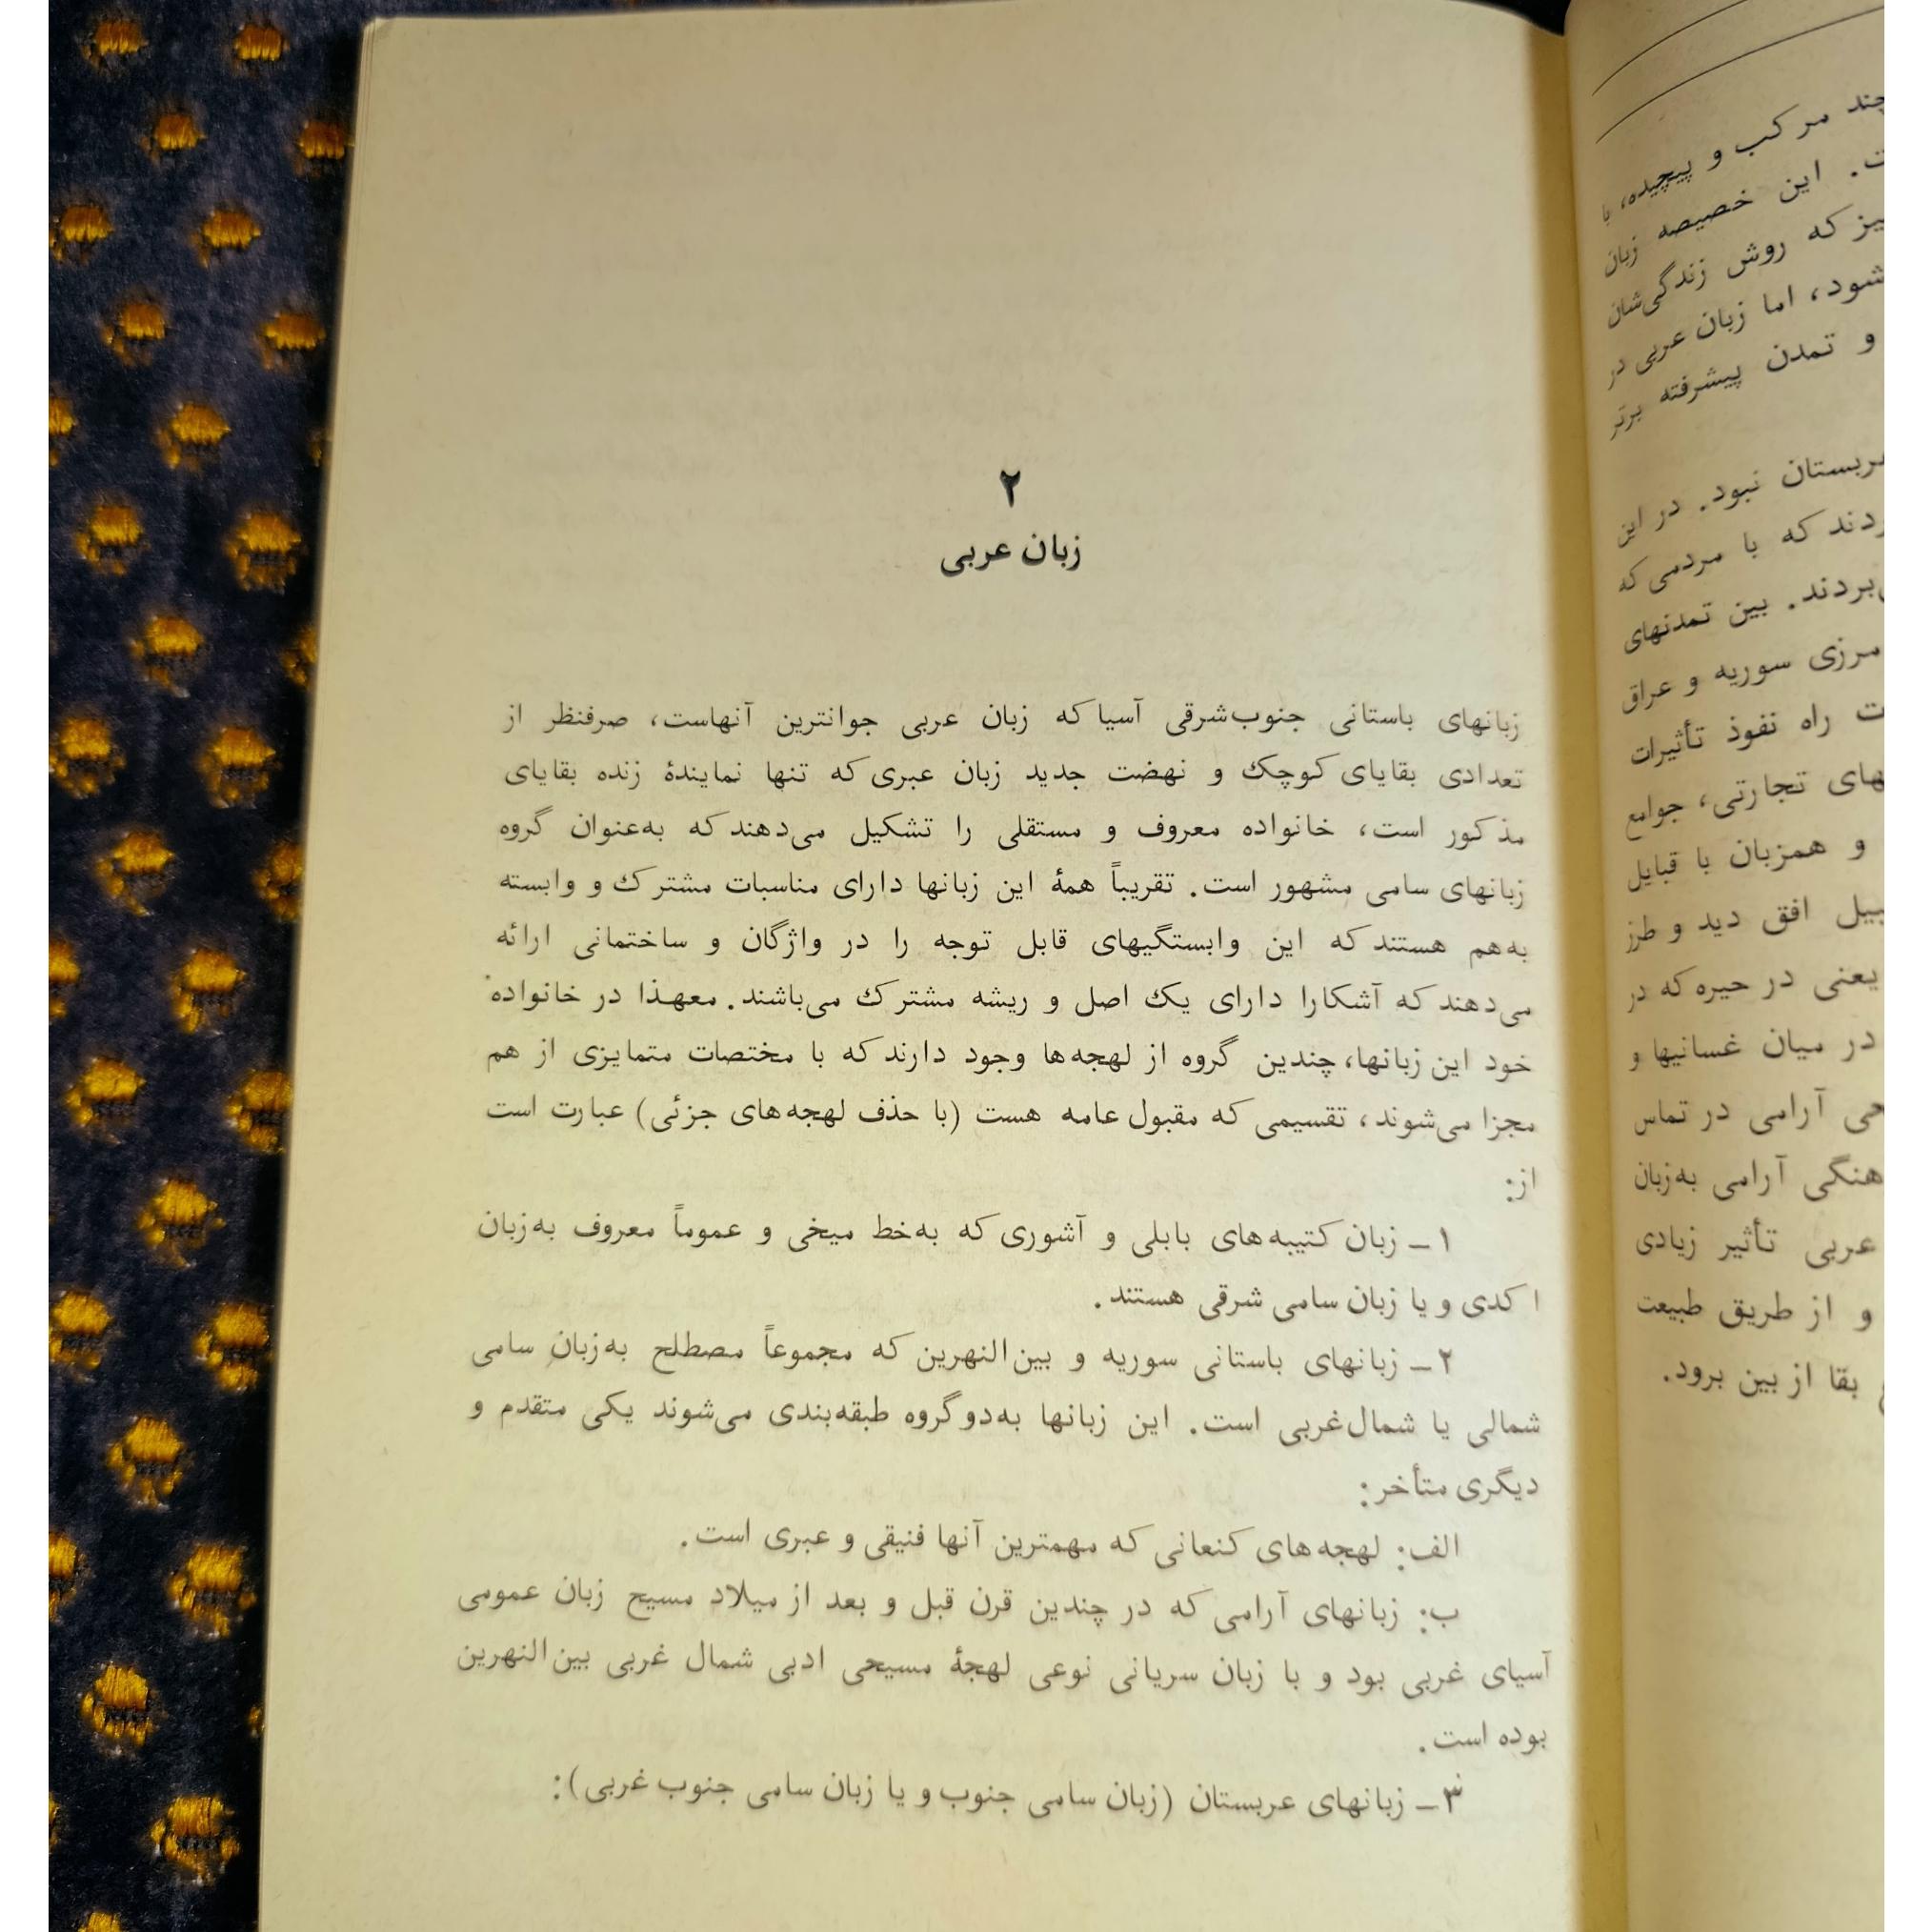 ۲
زبان عربی
زبانهای باستانی جنوب‌شرقی آسیا که زبان عربی جوانترین آنهاست، صرفنظر از
تعدادی بقایای کوچک و نهضت جدید زبان عبری که تنها نمایندهٔ زنده بقایای
مذکور است، خانواده معروف و مستقلی را تشکیل می‌دهند که به‌عنوان گروه
زبانهای سامی مشهور است. تقریباً همهٔ این زبانها دارای مناسبات مشترک و وابسته
به‌هم هستند که این وابستگیهای قابل توجه را در واژگان و ساختمانی ارائه
می‌دهند که آشکارا دارای یک اصل و ریشه مشترک می‌باشند. معهذا در خانواده
خود این زبانها، چندین گروه از لهجه‌ها وجود دارند که با مختصات متمایزی از هم
مجزا می‌شوند، تقسیمی که مقبول عامه هست (با حذف لهجه‌های جزئی) عبارت است
از:
۱ــ زبان کتیبه‌های بابلی و آشوری که به‌خط میخی و عموماً معروف به‌زبان
اکدی و یا زبان سامی شرقی هستند.
۲ــ زبانهای باستانی سوریه و بین‌النهرین که مجموعاً مصطلح به‌زبان سامی
شمالی یا شمال‌غربی است. این زبانها به‌دو گروه طبقه‌بندی می‌شوند یکی متقدم و
دیگری متأخر:
الف: لهجه‌های کنعانی که مهمترین آنها فنیقی و عبری است.
ب: زبانهای آرامی که در چندین قرن قبل و بعد از میلاد مسیح زبان عمومی
آسیای غربی بود و با زبان سریانی نوعی لهجهٔ مسیحی ادبی شمال غربی بین‌النهرین
بوده است.
۳ــ زبانهای عربستان (زبان سامی جنوب و یا زبان سامی جنوب غربی):
مرکب و پیچیده، با
این خصیصه زبان
که روش زندگی‌شان
شود، اما زبان عربی در
و تمدن پیشرفته برتر
نبود. در این
که با مردمی که
بین تمدنهای
مرزی سوریه و عراق
راه نفوذ تأثیرات
تجارتی، جوامع
و همزبان با قبایل
افق دید و طرز
یعنی در حیره که در
در میان غسانیها و
آرامی در تماس
آرامی به‌زبان
عربی تأثیر زیادی
و از طریق طبیعت
بقا از بین برود.